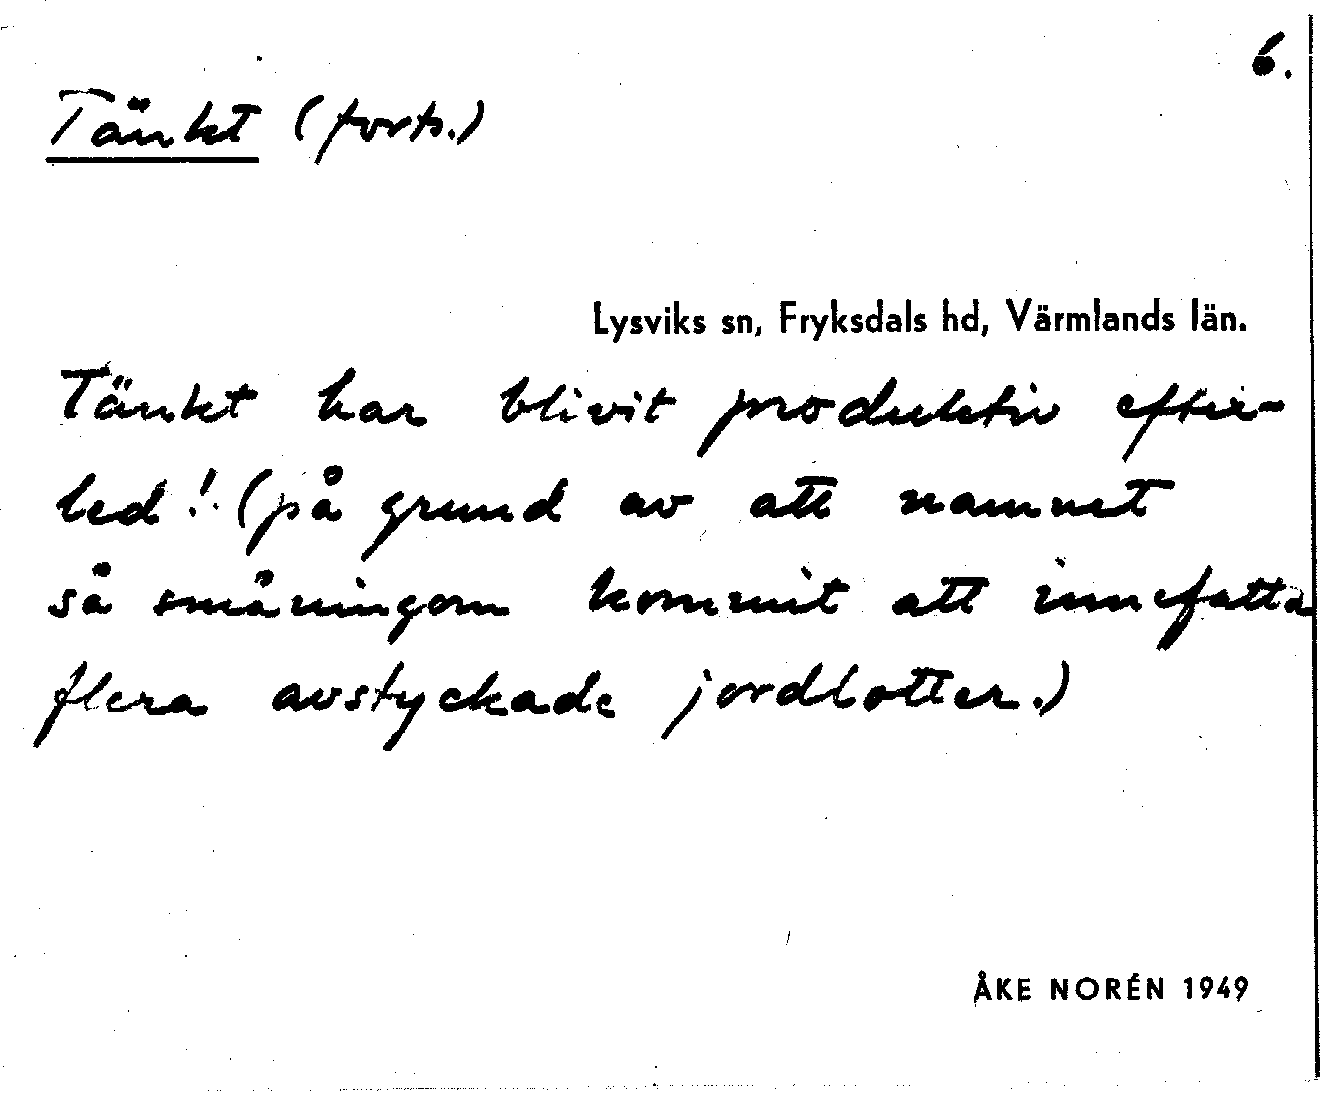 6.
Tänkt (forts.)
Lysviks sn, Fryksdals hd, Värmlands län.
Tänkt har blivit produktiv efter-
led! (på grund av att namnet
så småningom kommit att innefatta
flera avstyckade jordlotter.)
ÅKE NORÉN 1949